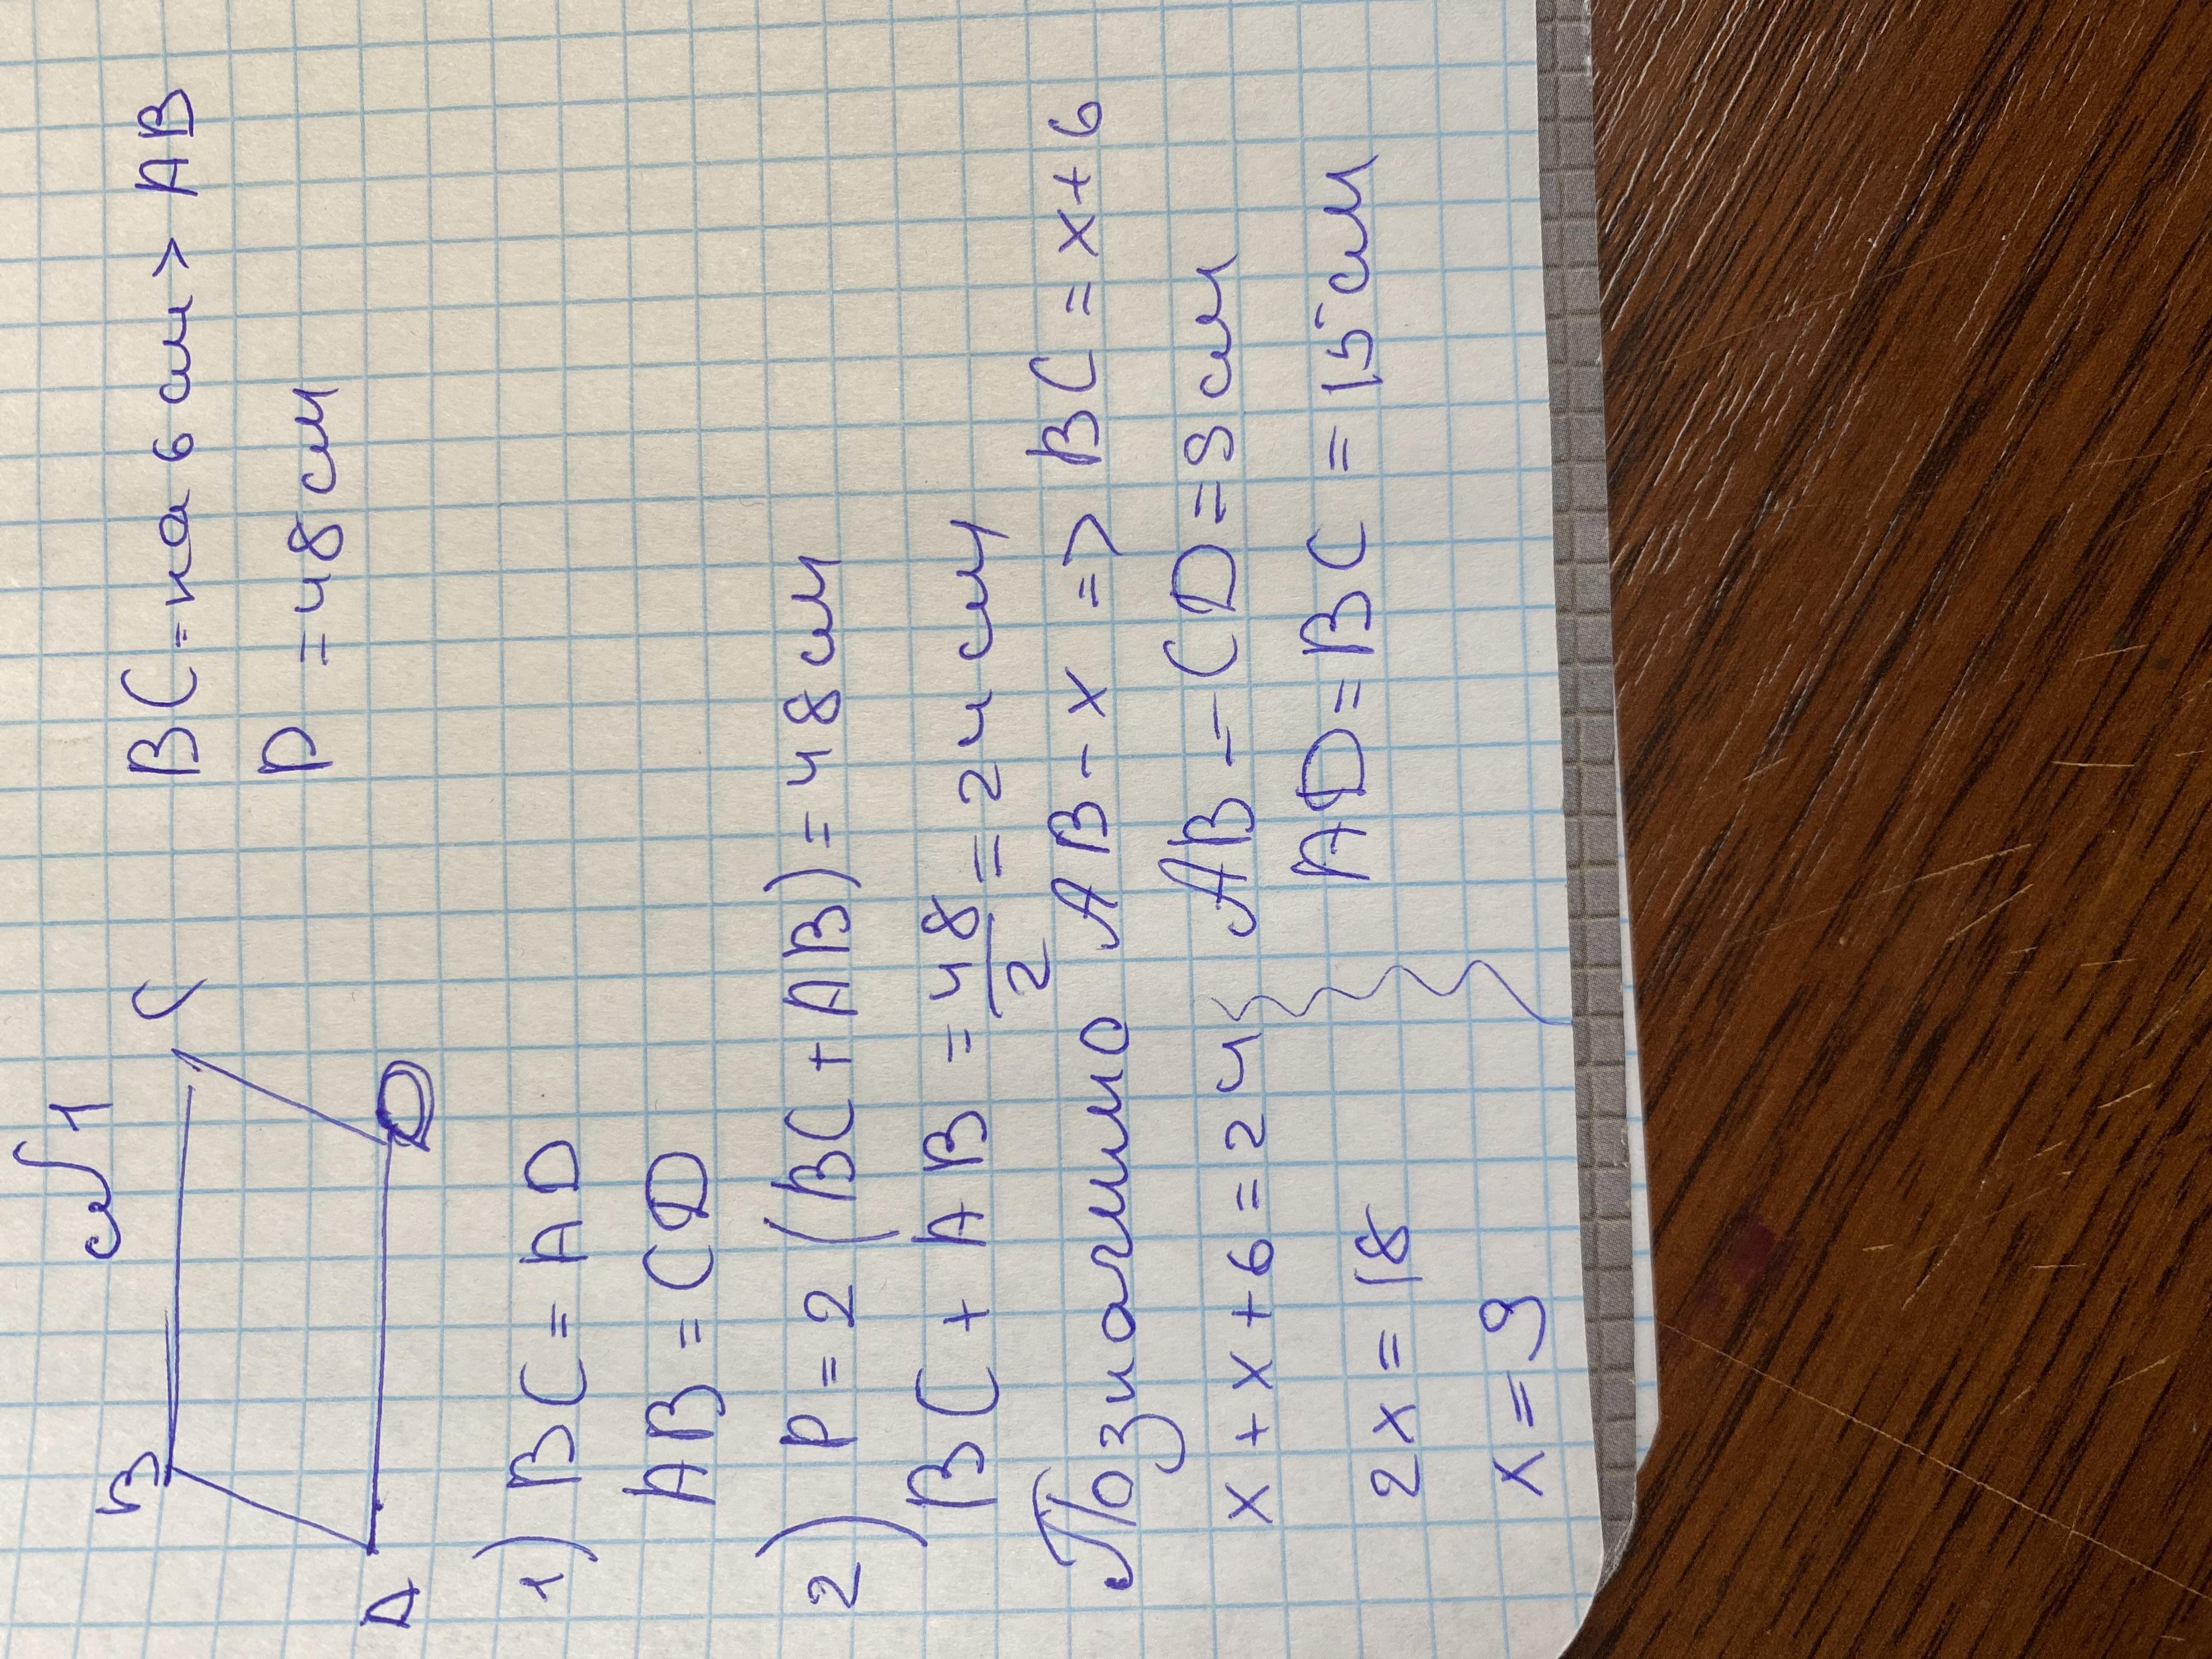 №1
B C
A D
BC = на 6 см > AB
P = 48 см
1) BC = AD
AB = CD
2) P = 2 (BC + AB) = 48 см
BC + AB = 48/2 = 24 см
Позначимо AB - x => BC = x + 6
x + x + 6 = 24
2x = 18
x = 9
AB - CD = 9 см
AD = BC = 15 см